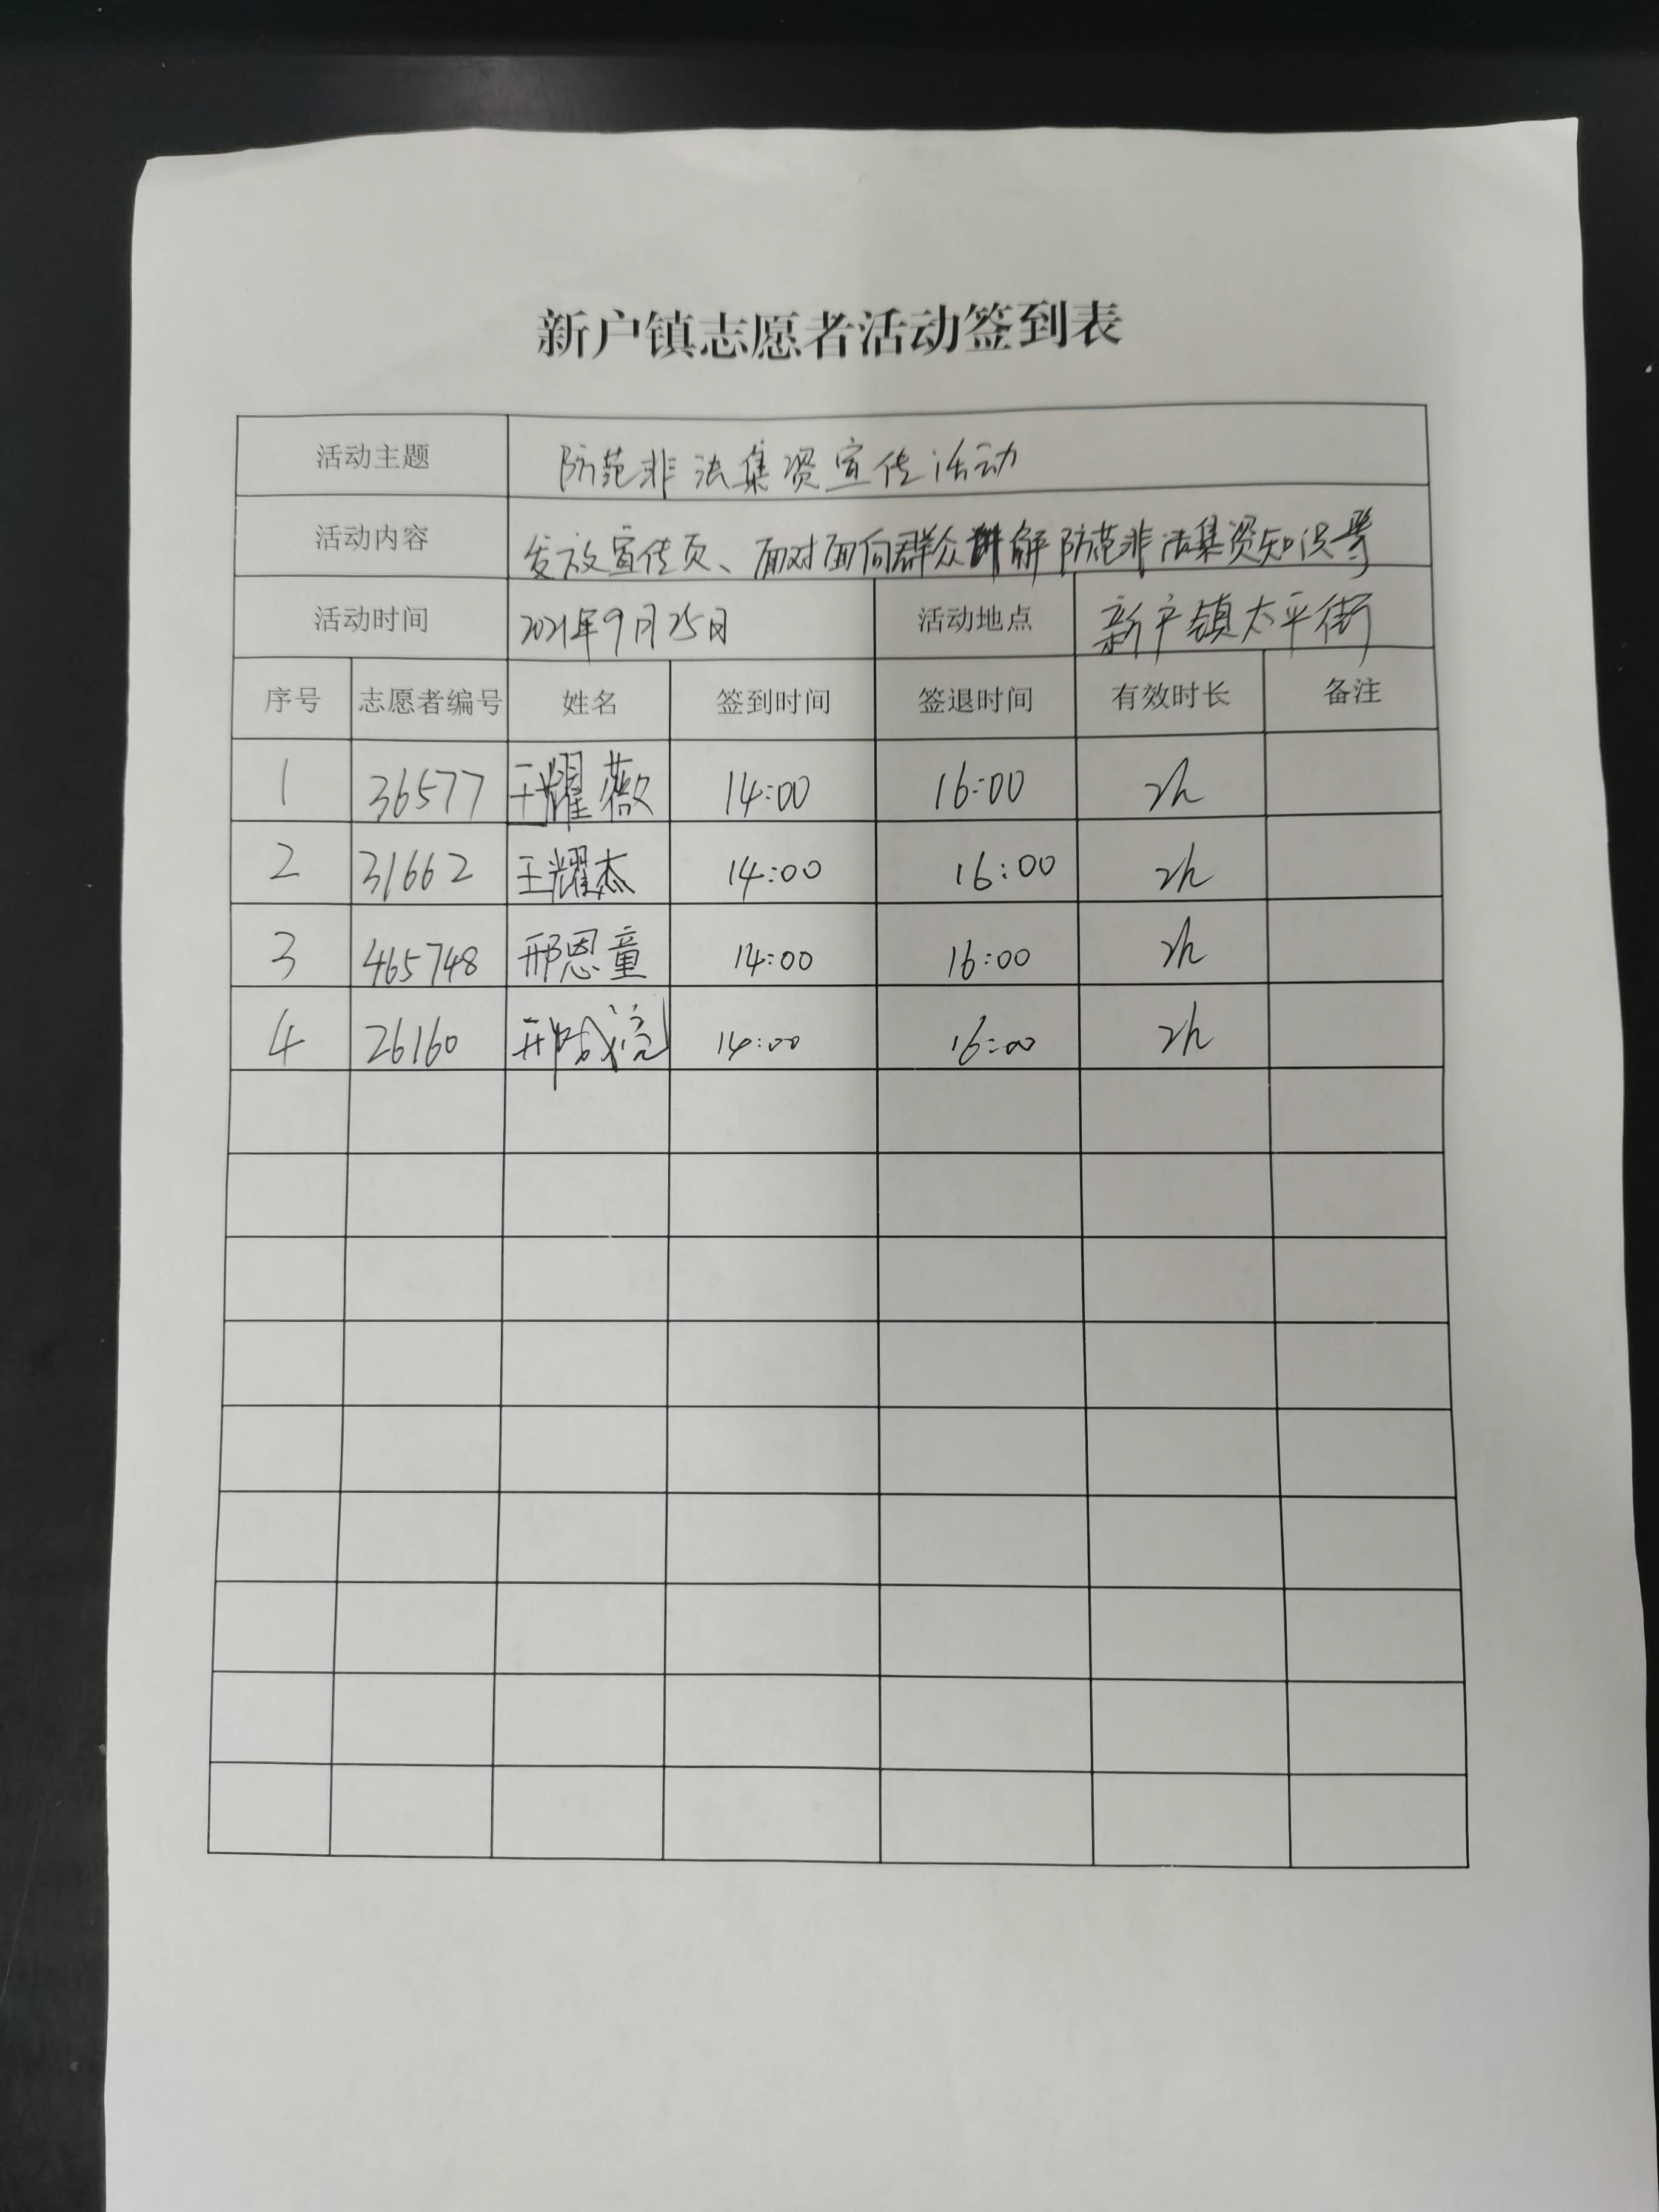 新户镇志愿者活动签到表
活动主题 防范非法集资宣传活动
活动内容 发放宣传页、面对面向群众讲解防范非法集资知识等
活动时间 2021年9月25日 活动地点 新户镇太平街
序号 志愿者编号 姓名 签到时间 签退时间 有效时长 备注
1 36577 王耀薇 14:00 16:00 2h
2 31662 王耀杰 14:00 16:00 2h
3 465748 邢恩童 14:00 16:00 2h
4 26160 邢 14:00 16:00 2h